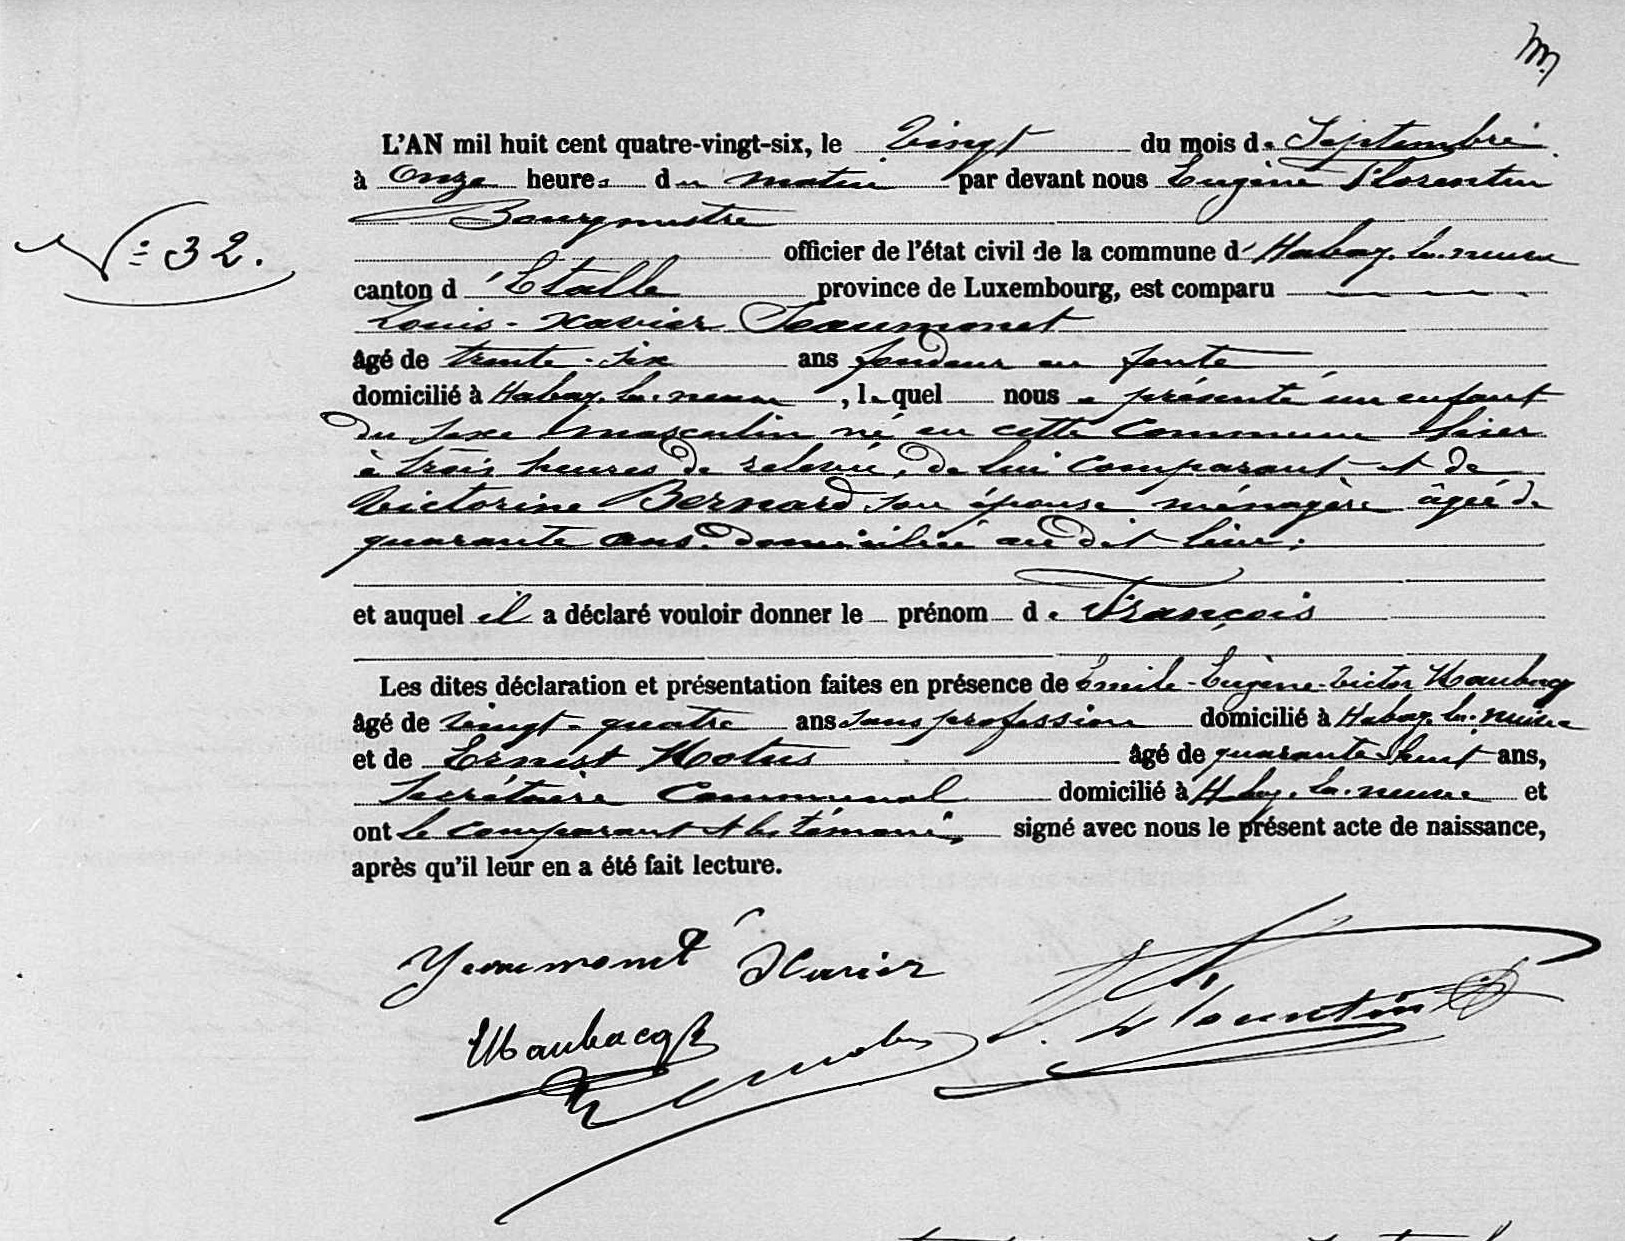 L'AN mil huit cent quatre-vingt-six, le vingt du mois de Septembre
à onze heures du matin par devant nous Eugène Florentin
Bourgmestre
N° 32.
officier de l'état civil de la commune d'Habay-la-neuve
canton d'Etalle province de Luxembourg, est comparu
Louis-Xavier Jeaumonet
âgé de trente-six ans fondeur en fonte
domicilié à Habay-la-neuve, lequel nous a présenté un enfant
du sexe masculin né en cette Commune hier
à trois heures de relevée, de lui comparant et de
Victorine Bernard son épouse ménagère âgée de
quarante ans domiciliée au dit lieu.
et auquel il a déclaré vouloir donner le prénom de François
Les dites déclaration et présentation faites en présence de Emile-Eugène-Victor Maubacq
âgé de vingt-quatre ans sans profession domicilié à Habay-la-neuve
et de Ernest Hotus âgé de quarante-huit ans,
Secrétaire Communal domicilié à Habay-la-neuve et
ont le comparant et les témoins signé avec nous le présent acte de naissance,
après qu'il leur en a été fait lecture.
Xavier
Maubacq
Florentin